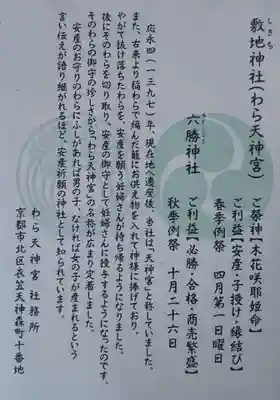 しきち
敷地神社(わら天神宮)
ご祭神【木花咲耶姫命】
ご利益【安産・子授け・縁結び】
春季例祭 四月第一日曜日
六勝神社
ご利益【必勝・合格・商売繁盛】
秋季例祭 十月二十六日
応永四(一三九七)年、現在地へ遷座後、当社は「天神宮」と称していました。
また、古来より稲わらで編んだ籠にお供え物を入れて神様に捧げており、
やがて抜け落ちたわらを、安産を願う妊婦さんが持ち帰るようになりました。
後にそのわらを切り取り、安産の御守として妊婦さんに授与するようになったのです。
そのわらの御守の珍しさから「わら天神宮」の名称が広まり定着しました。
安産のお守りのわらにふしがあれば男の子、なければ女の子が産まれるという
言い伝えが語り継がれるほど、安産祈願の神社として知られています。
わら天神宮 社務所
京都市北区衣笠天神森町十番地